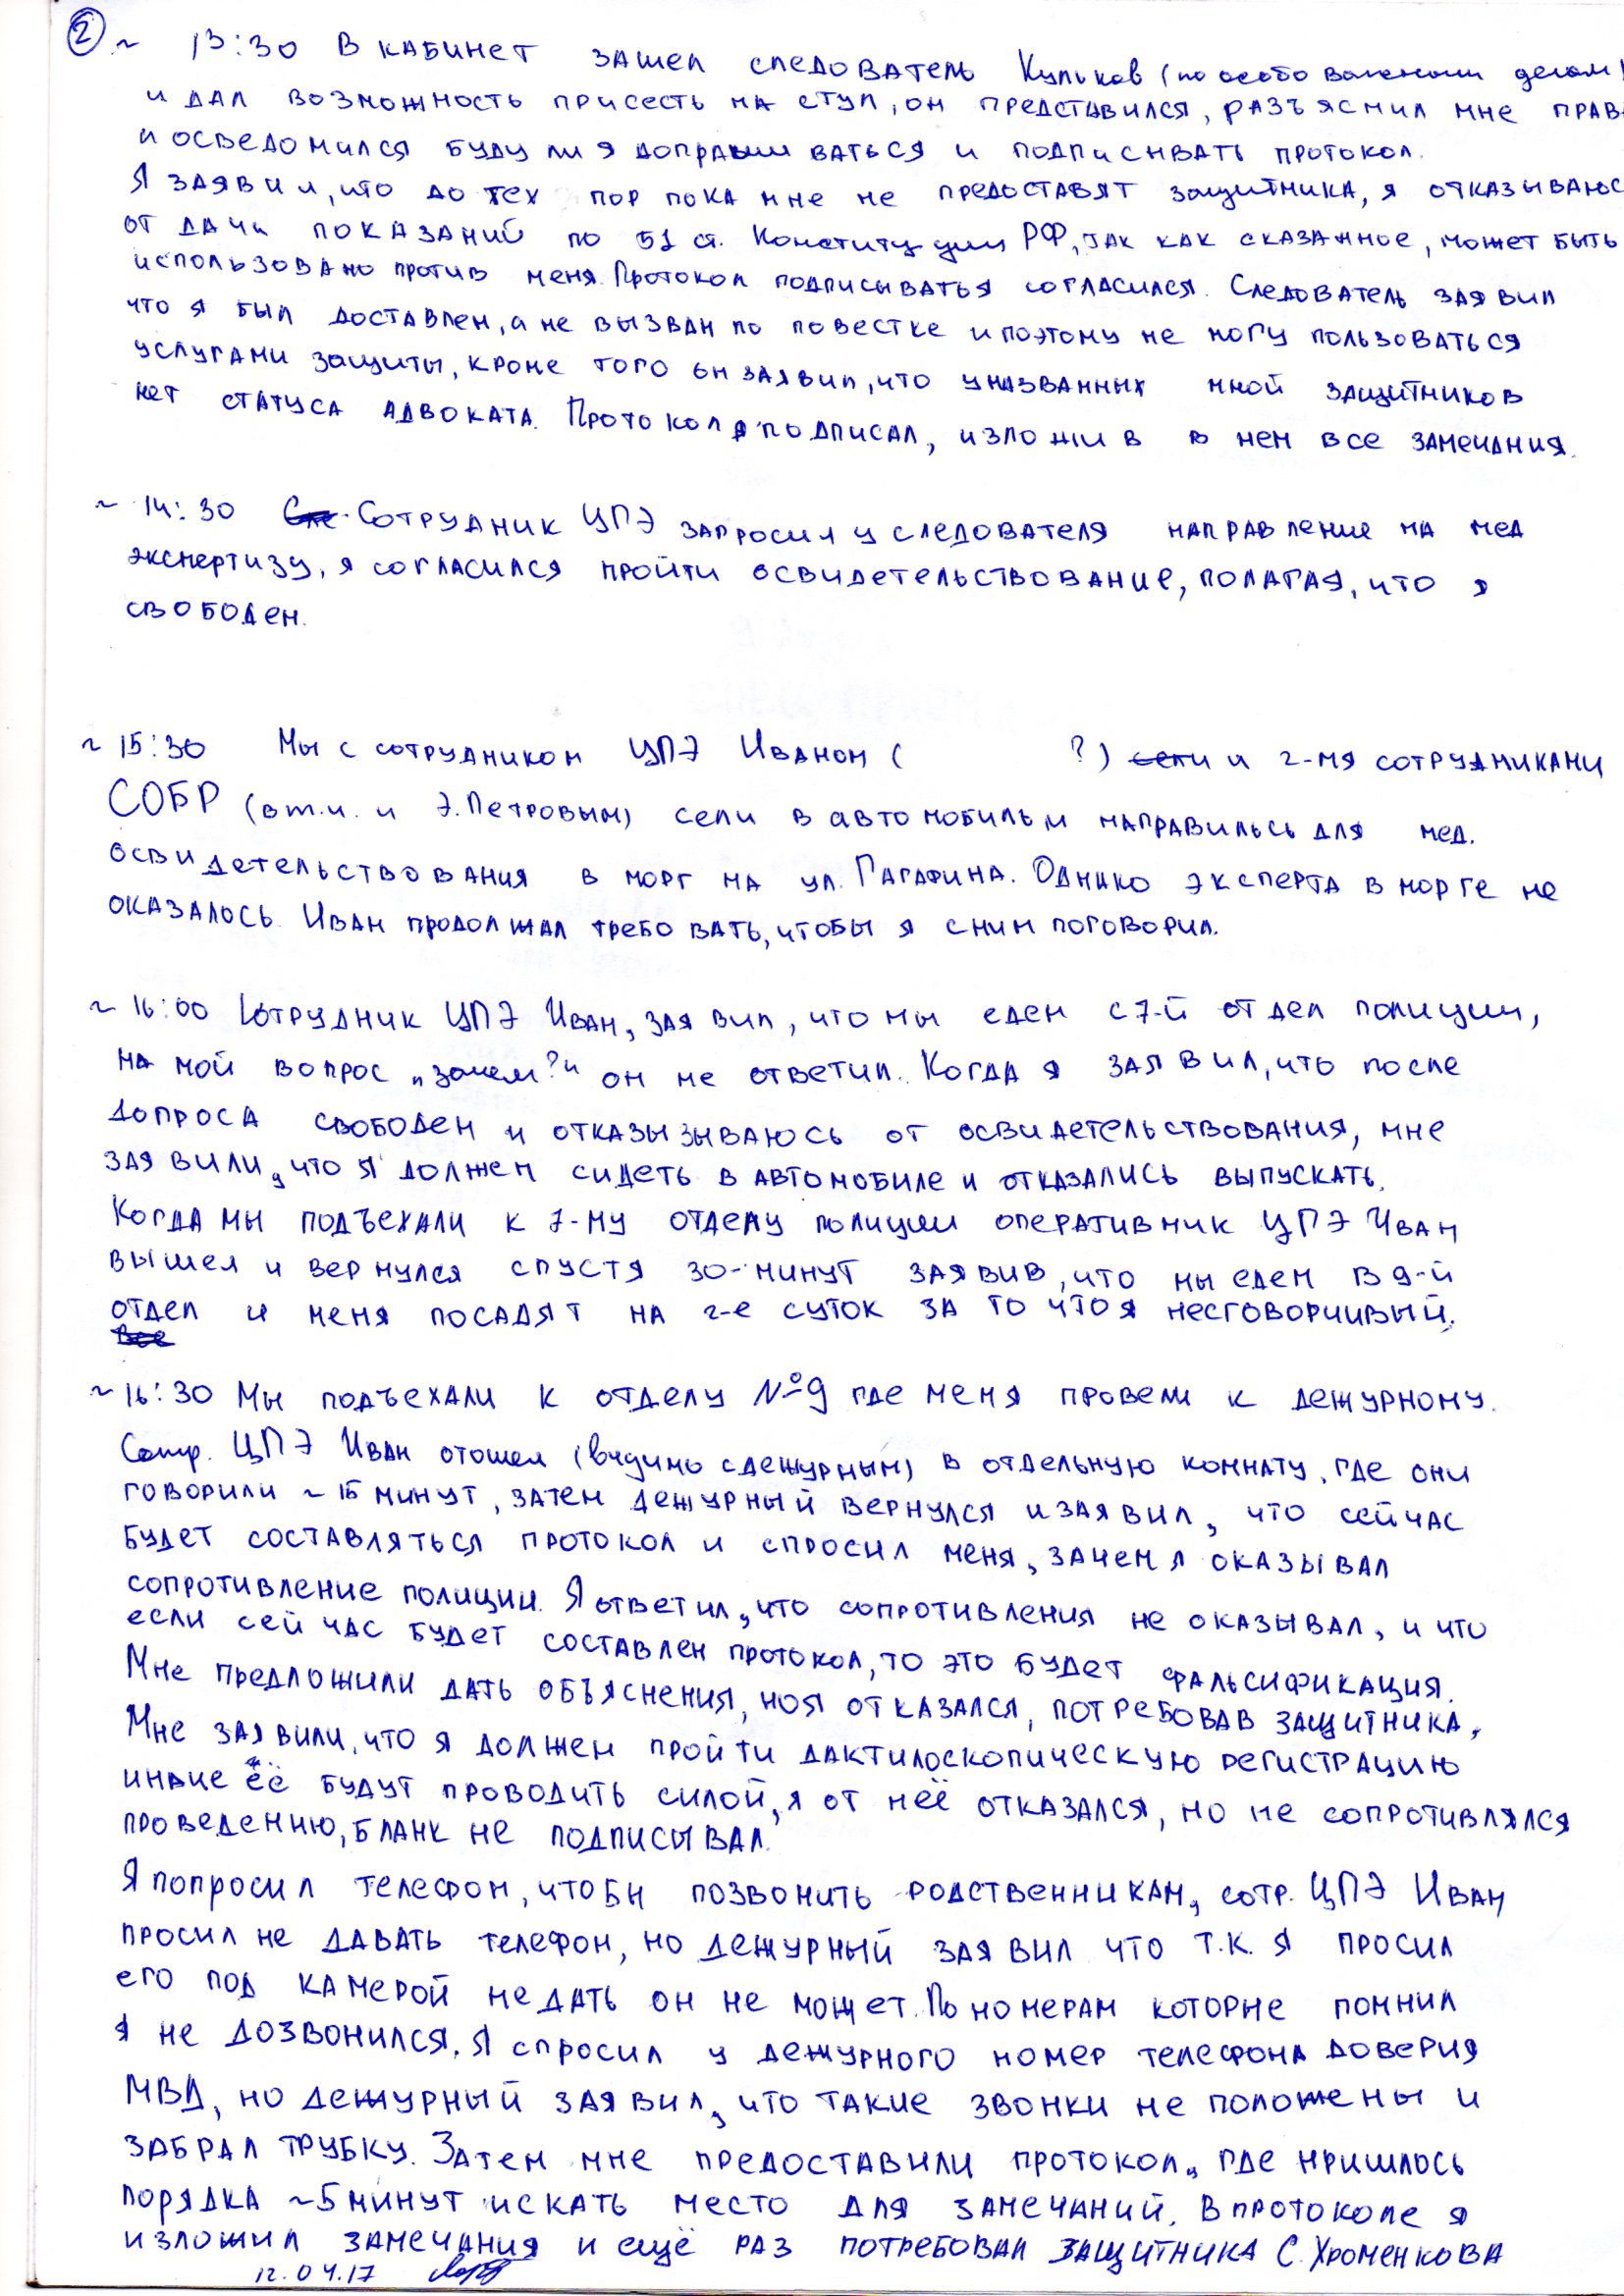 2
~ 13:30 В кабинет зашел следователь Кульков (по особо важным делам)
и дал возможность присесть на стул, он представился, разъяснил мне прав
и осведомился буду ли я допрашиваться и подписывать протокол.
Я заявил, что до тех пор пока мне не предоставят защитника, я отказываюс
от дачи показаний по 51 ст. Конституции РФ, так как сказанное, может быть
использовано против меня. Протокол подписываться согласился. Следователь заявил
что я был доставлен, а не вызван по повестке и поэтому не могу пользоваться
услугами защиты, кроме того он заявил, что у названных мной защитников
нет статуса адвоката. Протокол я подписал, изложив в нем все замечания.
~ 14:30 Сотрудник ЦПЭ запросил у следователя направление на мед
экспертизу, я согласился пройти освидетельствование, полагая, что я
свободен.
~ 15:30 Мы с сотрудником ЦПЭ Иваном ( ?) сели и 2-мя сотрудниками
СОБР (в т.ч. и Э. Петровым) сели в автомобиль и направились для мед.
освидетельствования в морг на ул. Гагарина. Однако эксперта в морге не
оказалось. Иван продолжал требовать, чтобы я с ним поговорил.
~ 16:00 Сотрудник ЦПЭ Иван, заявил, что мы едем с 7-й отдел полиции,
на мой вопрос „зачем?“ он не ответил. Когда я заявил, что после
допроса свободен и отказызываюсь от освидетельствования, мне
заявили, что я должен сидеть в автомобиле и отказались выпускать.
Когда мы подъехали к 7-му отделу полиции оперативник ЦПЭ Иван
вышел и вернулся спустя 30-минут заявив, что мы едем в 9-й
отдел и меня посадят на 2-е суток за то что я несговорчивый.
Все
~ 16:30 Мы подъехали к отделу №9 где меня провели к дежурному.
Сотр. ЦПЭ Иван отошел (видимо с дежурным) в отдельную комнату, где они
говорили ~ 15 минут, затем дежурный вернулся и заявил, что сейчас
будет составляться протокол и спросил меня, зачем я оказывал
сопротивление полиции. Я ответил, что сопротивления не оказывал, и что
если сейчас будет составлен протокол, то это будет фальсификация.
Мне предложили дать объяснения, но я отказался, потребовав защитника,
Мне заявили, что я должен пройти дактилоскопическую регистрацию
иначе её будут проводить силой, я от неё отказался, но не сопротивлялся
проведению, бланк не подписывал.
Я попросил телефон, чтобы позвонить родственникам, сотр. ЦПЭ Иван
просил не давать телефон, но дежурный заявил что т.к. я просил
его под камерой не дать он не может. По номерам которые помнил
я не дозвонился. Я спросил у дежурного номер телефона доверия
МВД, но дежурный заявил, что такие звонки не положены и
забрал трубку. Затем мне предоставили протокол, где пришлось
порядка ~5 минут искать место для замечаний. В протоколе я
изложил замечания и ещё раз потребовал защитника С. Хроменкова
12.04.17